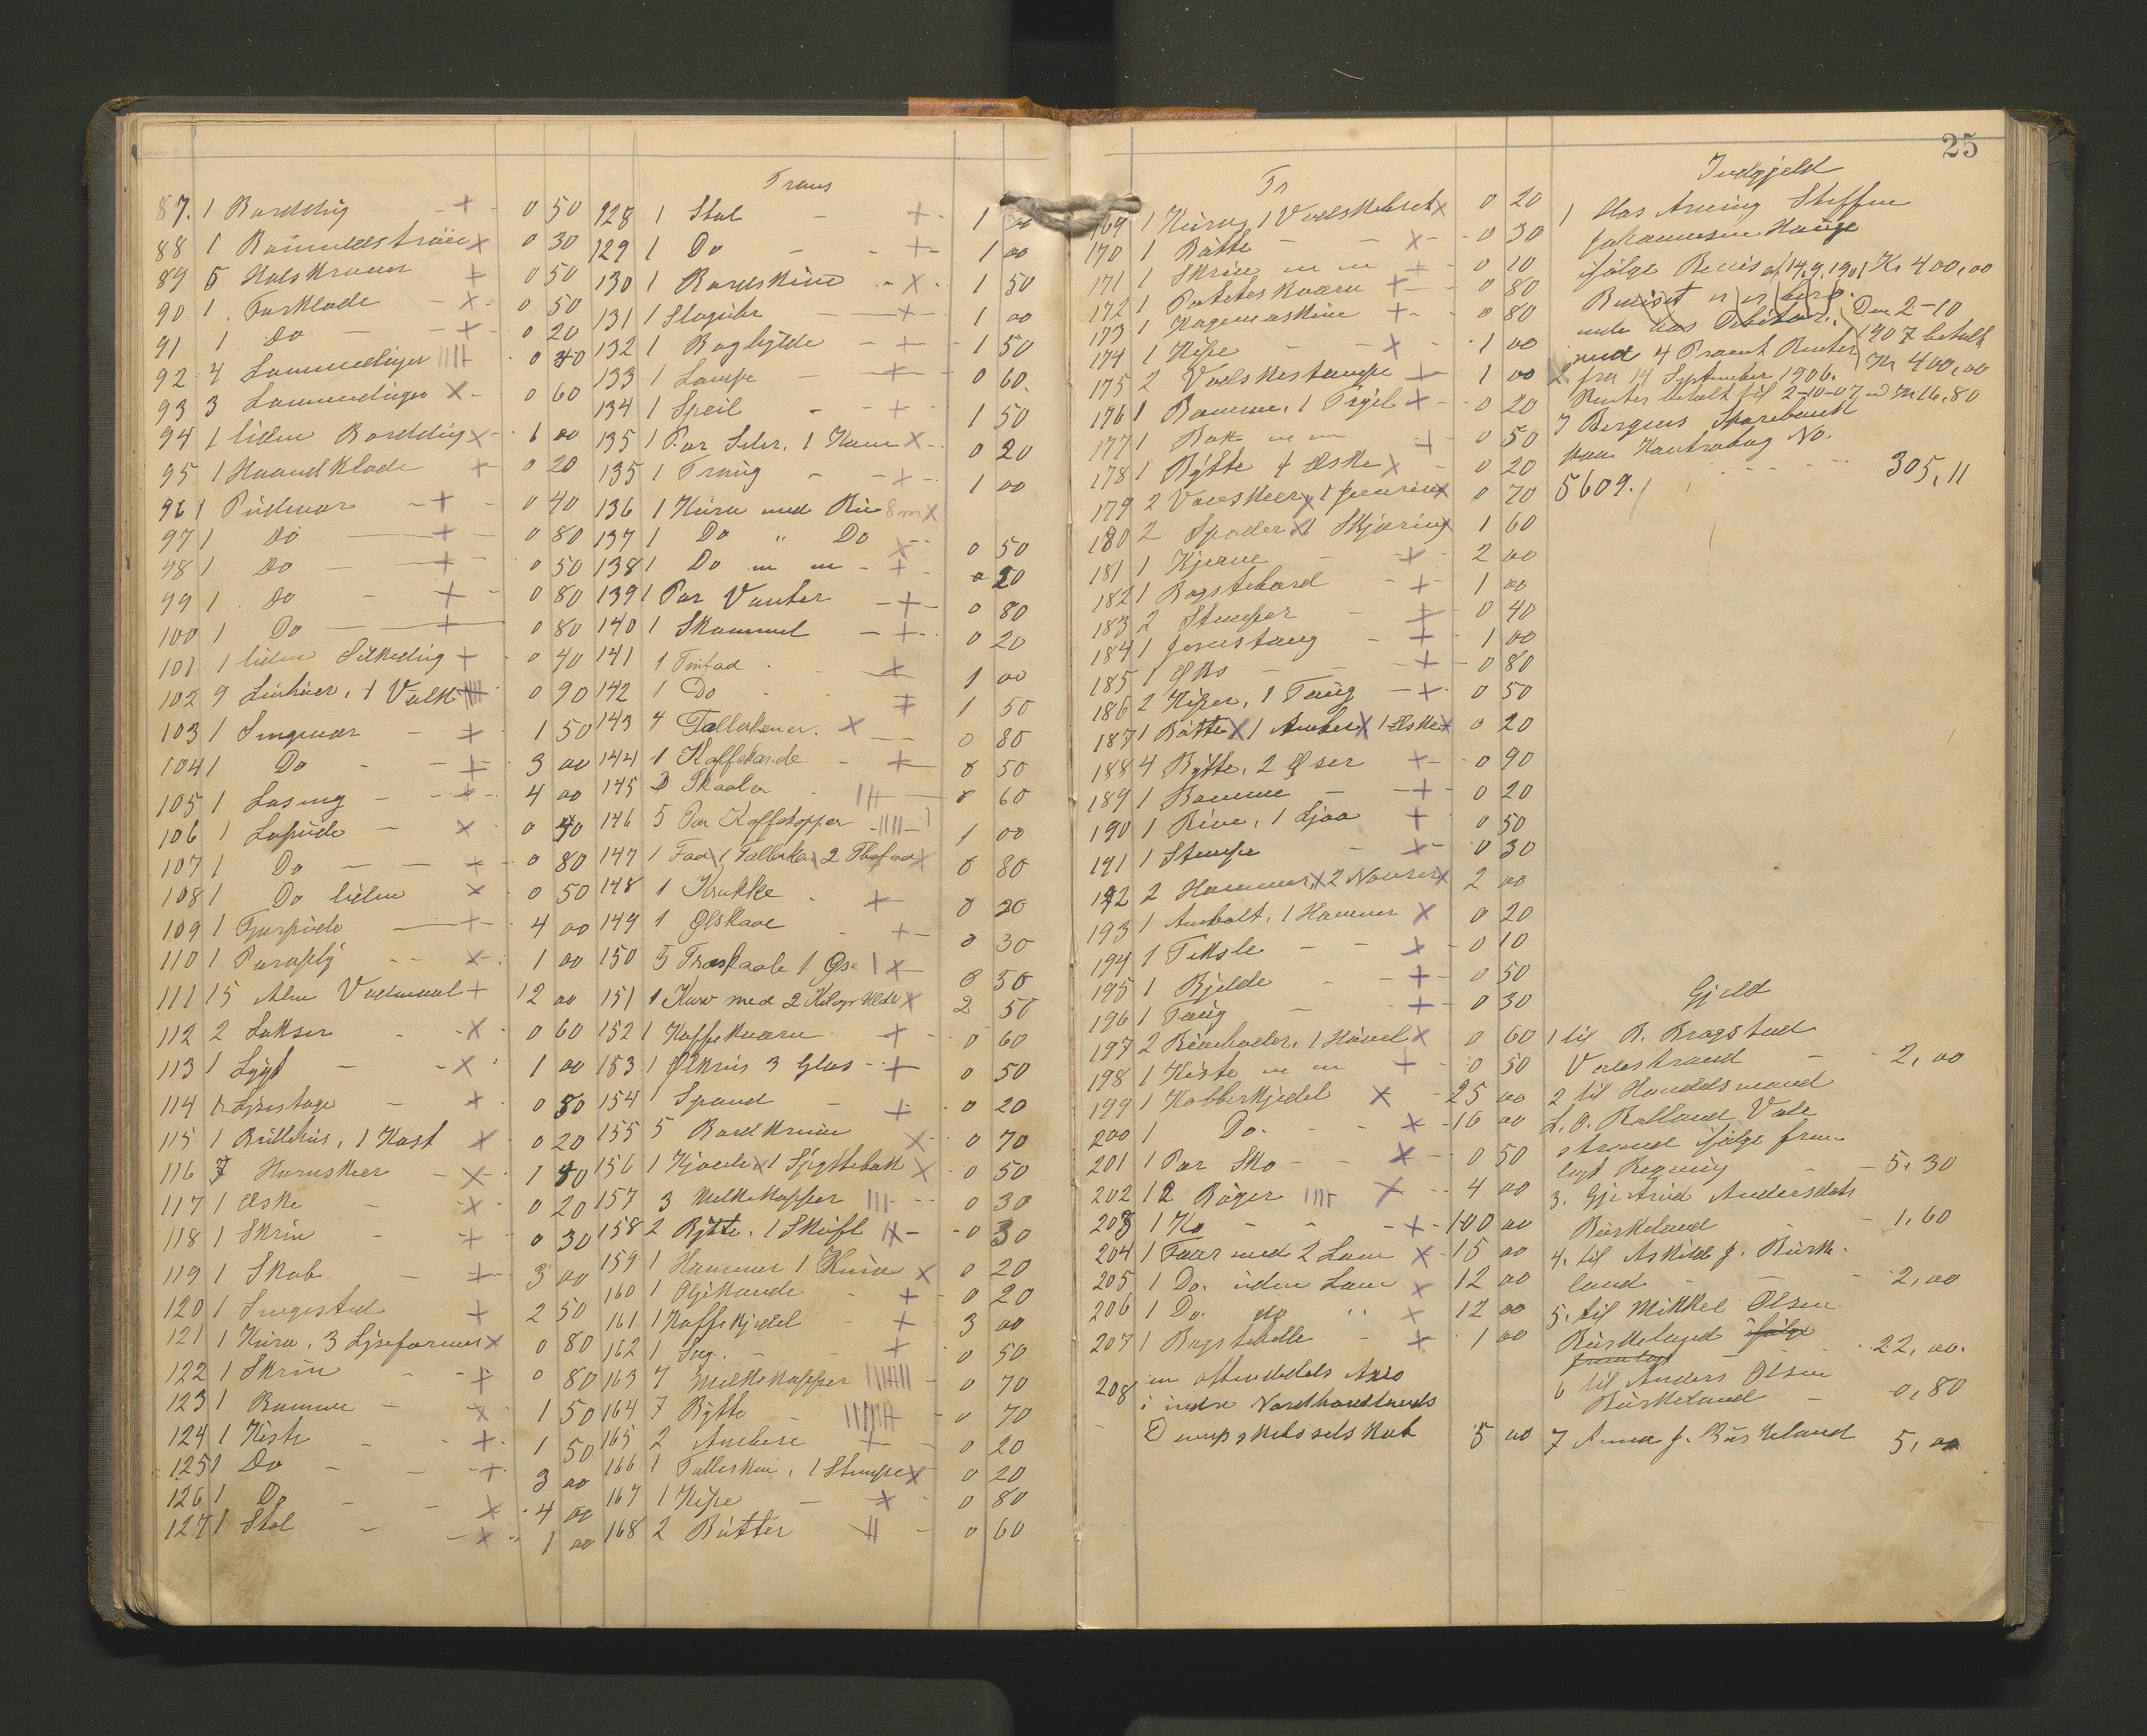 Trans
87. 1 Borddug + 0 50
88 1 Bomuldstrøie x 0 30
89 5 Halskraver + 0 50
90 1 Forklæde x 0 50
91 1 Do + 0 20
92 4 Lommeduger 0 40
93 3 Lommeduger x 0 60
94 1 liden Borddug x 1 00
95 1 Haandklæde + 0 20
96 1 Pudevar + 0 40
97 1 Do + 0 80
98 1 Do + 0 50
99 1 Do + 0 80
100 1 Do + 0 80
101 1 liden Silkedug + 0 40
102 9 Linhuer, 1 Valk 0 90
103 1 Sengevær + 1 50
104 1 Do + 3 00
105 1 Laseng + 4 00
106 1 Lapude x 0 40
107 1 Do + 0 80
108 1 Do liden x 0 50
109 1 Fjærpude + 4 00
110 1 Paraply x 1 00
111 15 Alen Vadmaal + 12 00
112 2 Lakser x 0 60
113 1 Lygt x 1 00
114 Lysestage + 0 80
115 1 Brillehus, 1 Kost x 0 20
116 7 Hornskeer x 1 40
117 1 Æske x 0 20
118 1 Skrin + 0 30
119 1 Skab + 3 00
120 1 Sengested + 2 50
121 1 Kurv, 3 Lyseformer x 0 80
122 1 Skrin + 0 80
123 1 Bomme x 1 50
124 1 Kiste + 1 50
125 1 Do + 3 00
126 1 Do x 4 00
127 1 Stol x 1 00
128 1 Stol + 1 00
129 1 Do + 1 00
130 1 Bordskive x 1 50
131 1 Slaguhr + 1 00
132 1 Boghylde + 1 50
133 1 Lampe + 0 60.
134 1 Speil + 1 50
135 1 Par Seler, 1 Kam x 0 20
135 1 Traug + 1 00
136 1 Kurv med x
137 1 Do " Do x 0 50
138 1 Do + 0 20
139 1 Par Vanter + 0 80
140 1 Skammel + 0 20
141 1 Tinfad x 1 00
142 1 Do + 1 50
143 4 Tallerkener. x 0 80
144 1 Kaffekande + 0 50
145 3 Skaaler 0 60
146 5 Par Kaffekopper 1 00
147 1 Fad x 1 Tallerken x 2 Thefad x 0 80
148 1 Krukke + 0 20
149 1 Ølskaal + 0 30
150 5 Træskaale 1 Øse x 0 50
151 1 Kurv med 2 Kilogr Uld x 2 50
152 1 Kaffekværn + 0 60
153 1 Ølkrus 3 Glas + 0 50
154 1 Spand + 0 20
155 5 Bordknive x 0 70
156 1 Kjæde x 1 x 0 50
157 3 Melkekopper 0 30
158 2 Bytte, 1 Skuffe 0 30
159 1 Hammer 1 Kniv x 0 20
160 1 Oljekande + 0 20
161 1 Kaffekjedel + 3 00
162 1 Sag. + 0 50
163 7 Melkekopper 0 70
164 7 Bytte 0 70
165 2 Ambere + 0 20
166 1 Tallerken, 1 Stampe x 0 20
167 1 Kipe x 0 80
168 2 Bøtter 0 60
25
Tr
169 1 Kurv, 1 Vadskebræt x 0 20
170 1 Bøtte x 0 30
171 1 Skrin + 0 10
172 1 Poteteskværn + 0 80
173 1 Kagemaskine + 0 80
174 1 Kipe x 1 00
175 2 Vadskestampe + 1 00
176 1 Bomme, 1 Trygel x 0 20
177 1 + 0 50
178 1 Bytte 4 Æske x 0 20
179 2 x 0 70
180 2 Spader x 1 x 1 60
181 1 Kjerne + 2 00
182 1 Bagstebord + 1 00
183 2 Stamper + 0 40
184 1 Jernstang + 1 00
185 1 Øks + 0 80
186 2 Kiper, 1 Taug + 0 50
187 1 Bøtte x 1 Amber x 1 Æske x 0 20
188 4 Bytte, 2 Øser + 0 90
189 1 Bomme + 0 20
190 1 Rive, 1 Ljaa + 0 50
191 1 Stampe x 0 30
192 2 Hammer, x 2 Navrer x 2 00
193 1 Ambolt, 1 Hammer x 0 20
194 1 Tiksle x 0 10
195 1 Bjelde + 0 50
196 1 Taug + 0 30
197 2 , 1 Høvel x 0 60
198 1 Kiste + 0 50
199 1 Kobberkjedel x 25 00
200 1 Do. x 16 00
201 1 Par Sko x 0 50
202 12 Bøger x 4 00
203 1 Ko + 100 00
204 1 Faar med 2 Lam x 15 00
205 1 Do. uden Lam x 12 00
206 1 Do. do " x 12 00
207 1 Bagstehelle + 1 00
208 en ottendedels
i indre Nordhordlands
Dampskibsselskab 5 00
Indgjeld
1 Hos Arving Steffen
Johannesen Hauge
ifølge Bevis af 14.9.1901 Kr 400,00
Beviset er
under hos Debitor. Den 2-10
med 4 Procent Renter 1907 betalt
fra 14 September 1906. Kr 400,00
Renter betalt til 2-10-07 Kr 16,80
I Bergens Sparebank
paa Kontrabog No.
5609. 305,11
Gjeld
1 til B. Bragstad
Valestrand 2,00
2 til Handelsmand
L. O. Rolland Vale
strand ifølge frem
lagt Regning 5,30
3. Gjertrud Andersdatr
Burkeland 1,60
4. til Askild J. Burke
land 2,00
5. til Mikkel Olsen
Burkeland ifølge
fremlagt 22,00.
6 til Anders Olsen
Burkeland 0,80
7 Anna J. Burkeland 5,00